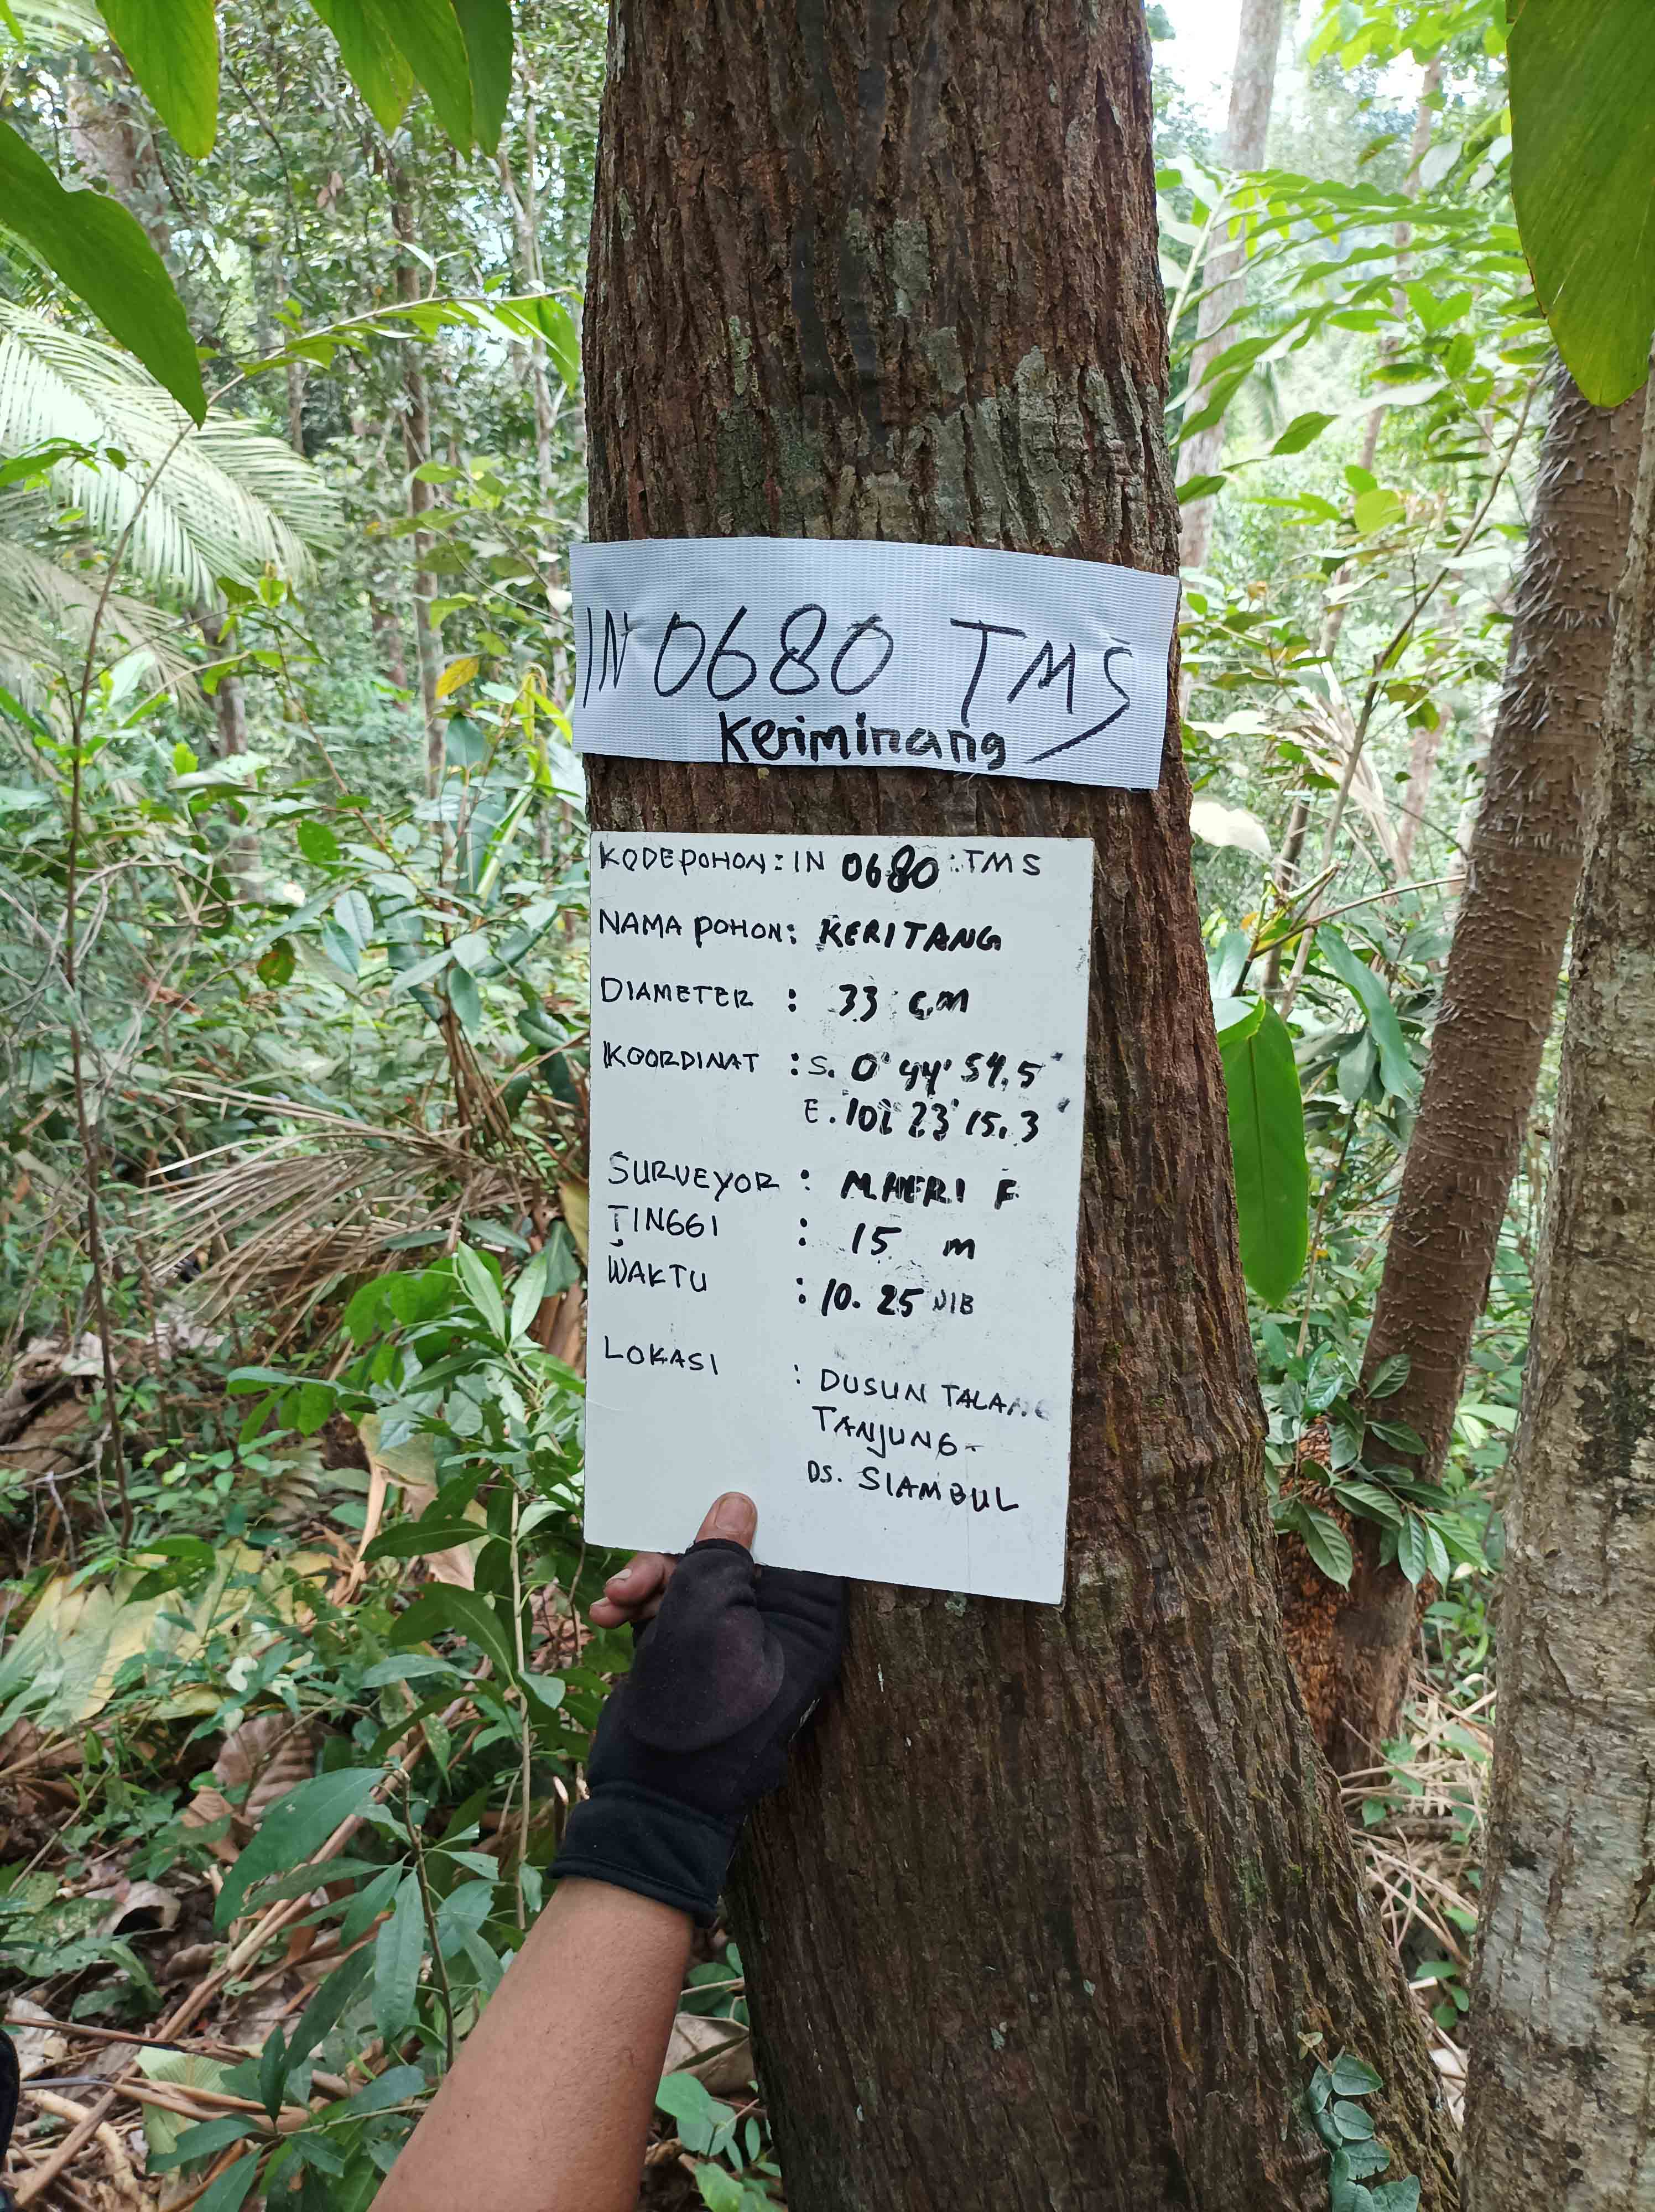 IN 0680 TMS
Keriminang
KODE POHON : IN 0680 : TMS
NAMA POHON : KERITANG
DIAMETER : 33 CM
KOORDINAT : S. 0° 44' 59.5"
E. 102° 23' 15.3"
SURVEYOR : M. HERI F
TINGGI : 15 m
WAKTU : 10.25 WIB
LOKASI : DUSUN TALANG
TANJUNG-
DS. SIAMBUL